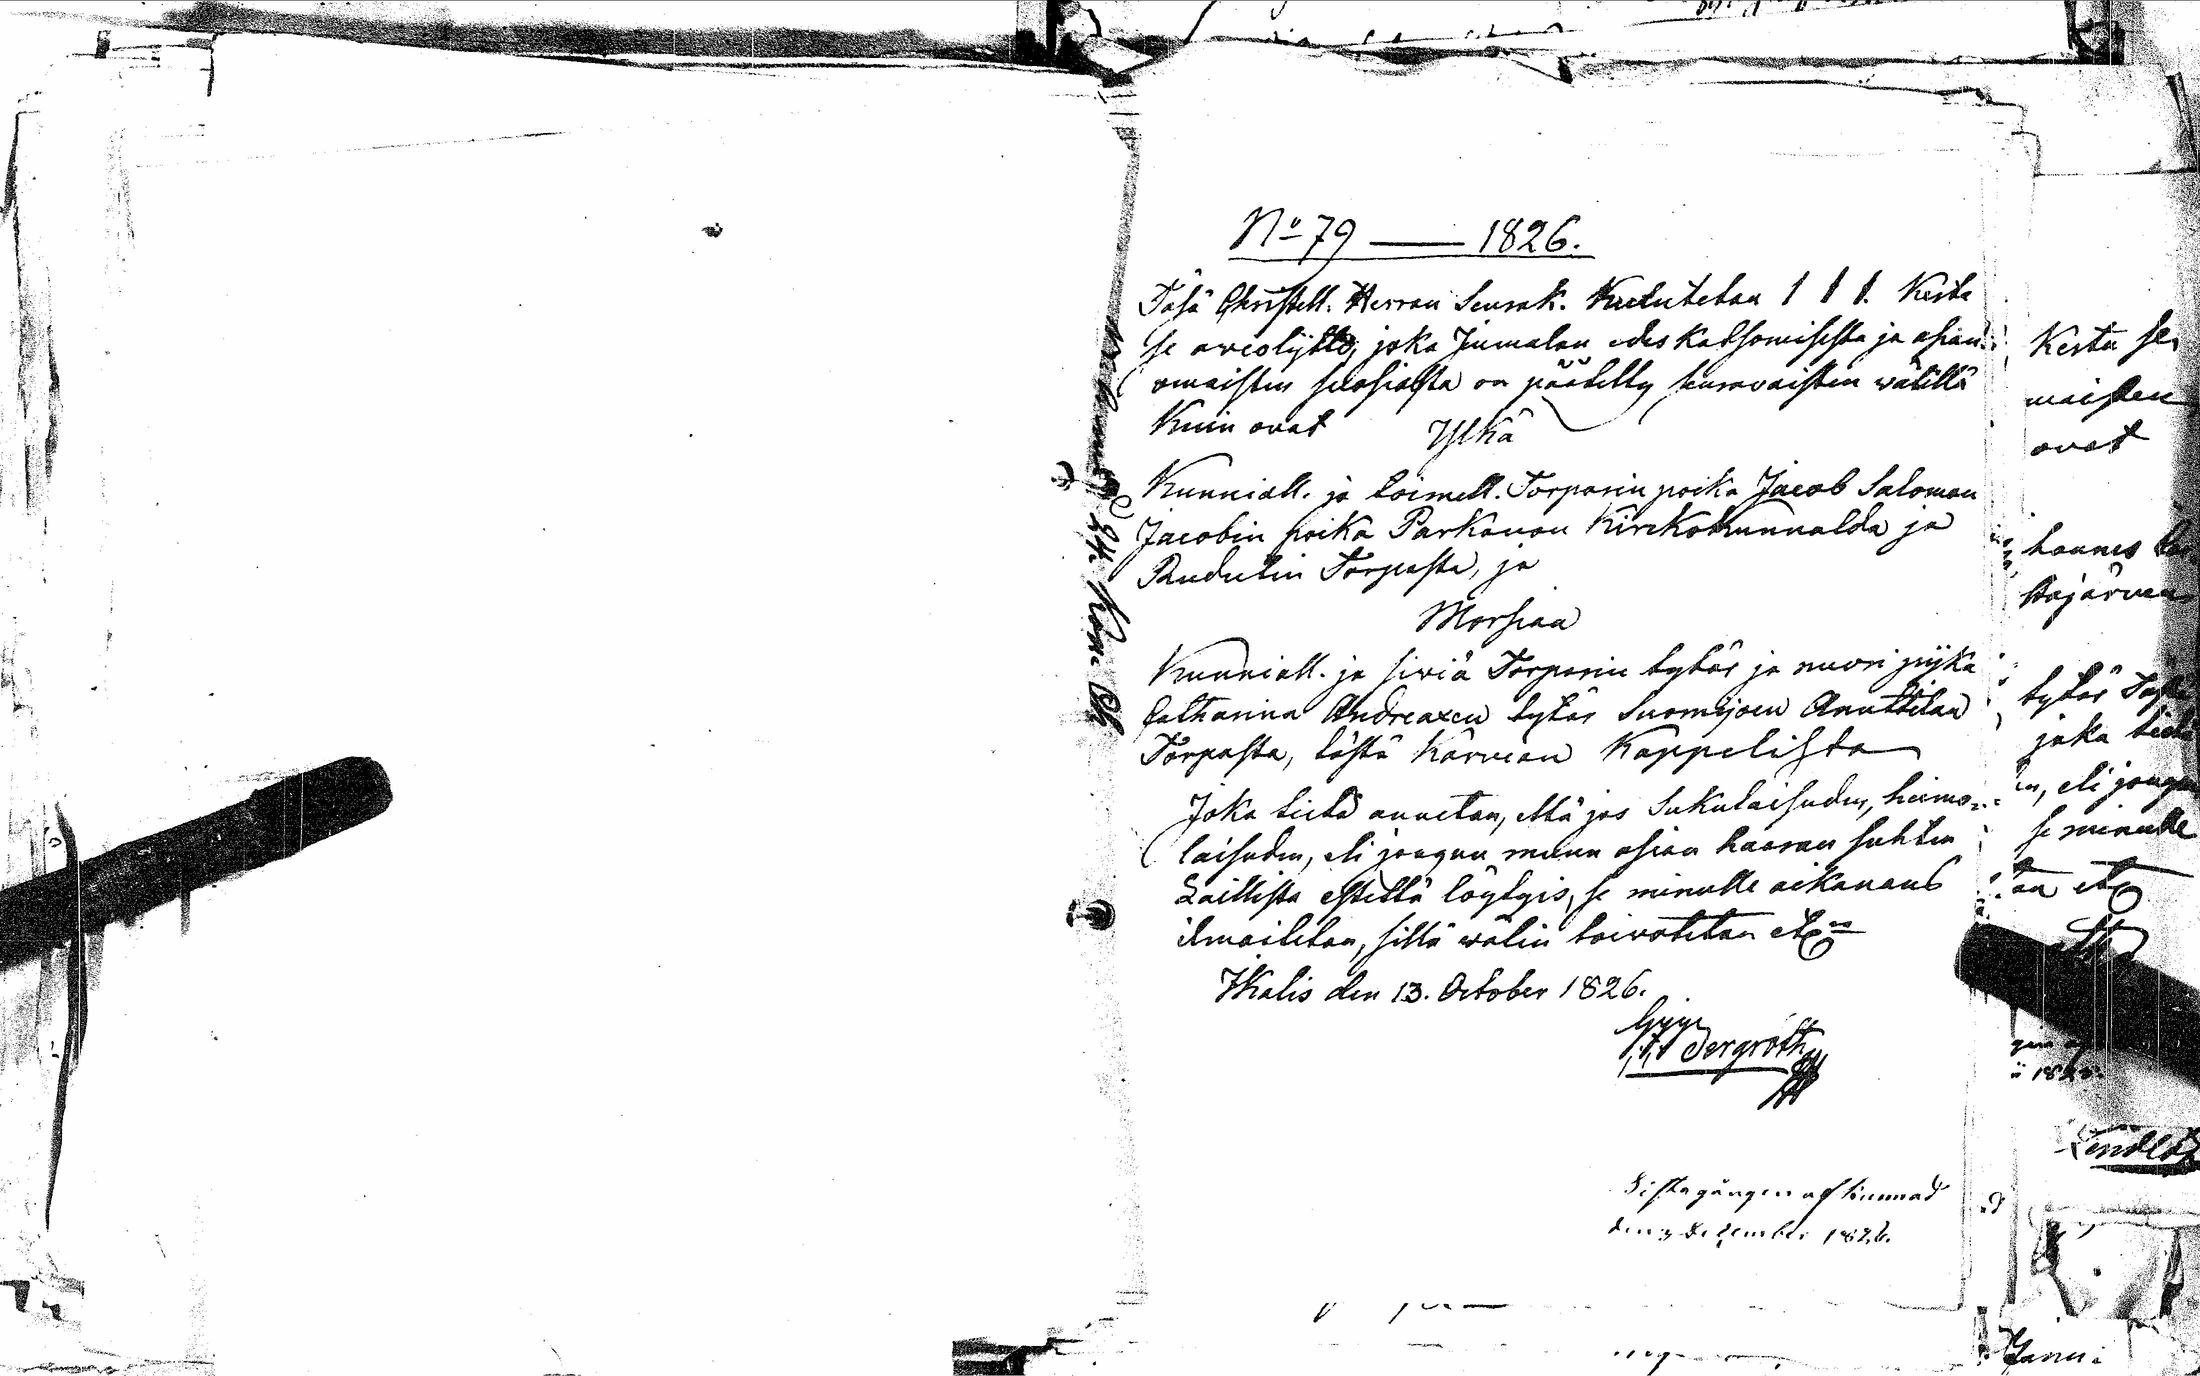 No 79 — 1826.
Täsä Christell. Herran Seurak. Kuulutetan 1 1 1. Kerta
se aviokäsky, joka Jumalan edes katsomisesta ja asian-
omaisten suosiosta on päätetty seuravaisten wälillä
Kuin ovat
Ylkä
Kunniall. ja toimell. Torparin poika Jacob Salomon
Jacobin poika Parkanon Kirckokunnalda ja
Torpasta, ja
Morsian
Kunniall. ja siviä Torparin tytär ja nuori pijka
Catharina Andreaxen tytär Suomijoen Anttilan
Torpasta, tästä Karvian Kappelista
Joka tietä annetan, että jos Sukulaisuden, heimo-
laisuden, eli jongun muun asian haaran suhten
Laillista estettä löytyis, se minulle aikanans
ilmoitetan, sillä wälin toivotetan etc
Ikalis den 13. October 1826.
Bergroth
Sista gången aflkunnad
den 3 December 1826.
Kerta se
maisten
ovat
hannes
tajärven
tytär
joka tietä
eli jongun
se minulle
tan etc